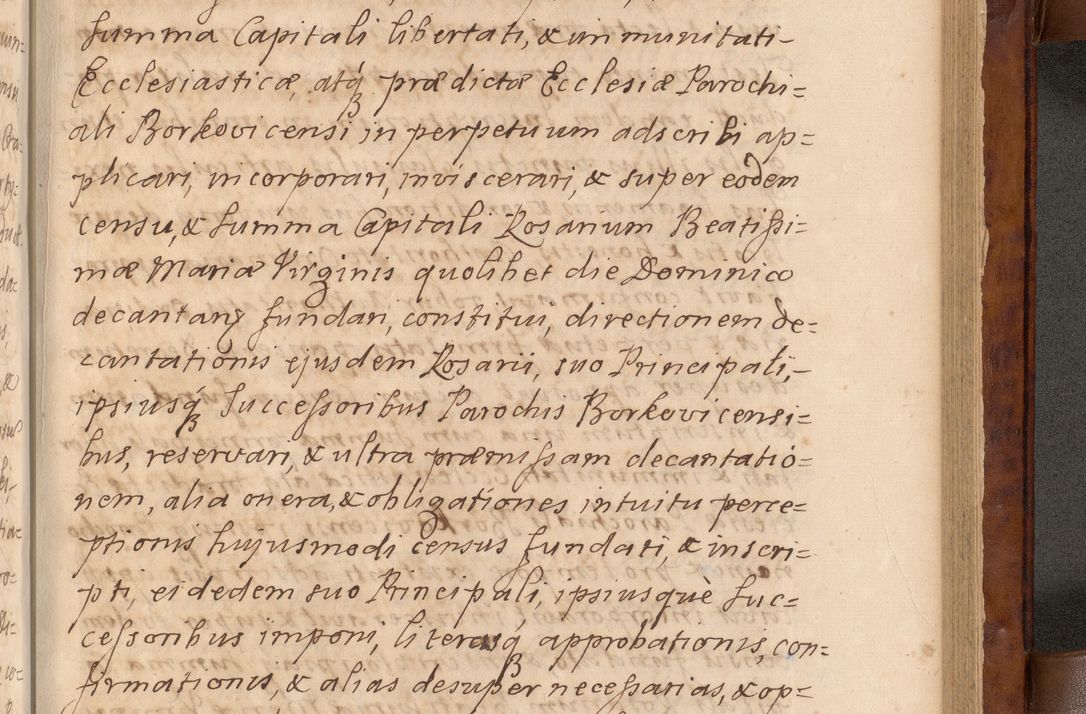 Summa Capitali libertati, & immunitati-
Ecclesiasticæ, atq́ꝫ prædictæ Ecclesiæ Parochi=
ali Borkovicensi in perpetuum adscribi ap=
plicari, incorporari, inviscerari, & super eodem
censu, & Summa Capitali Rosarium Beatissi=
mæ Mariæ Virginis quolibet die Dominico
decantanꝫ fundari, constitui, directionem de=
cantationis ejusdem Rosarii, suo Principali,-
ipsiusq́ꝫ Successoribus Parochis Borkovicensi=
bus, reservari, & ultra præmissam decantatio=
nem, alia onera, & obligationes intuitu perce=
ptionis hujusmodi census fundati, & inscri=
pti, eidedem suo Principali, ipsiusquè Suc=
cessoribus imponi, literasq́ꝫ approbationis, con=
firmationis, & alias desuper necessarias, & op=